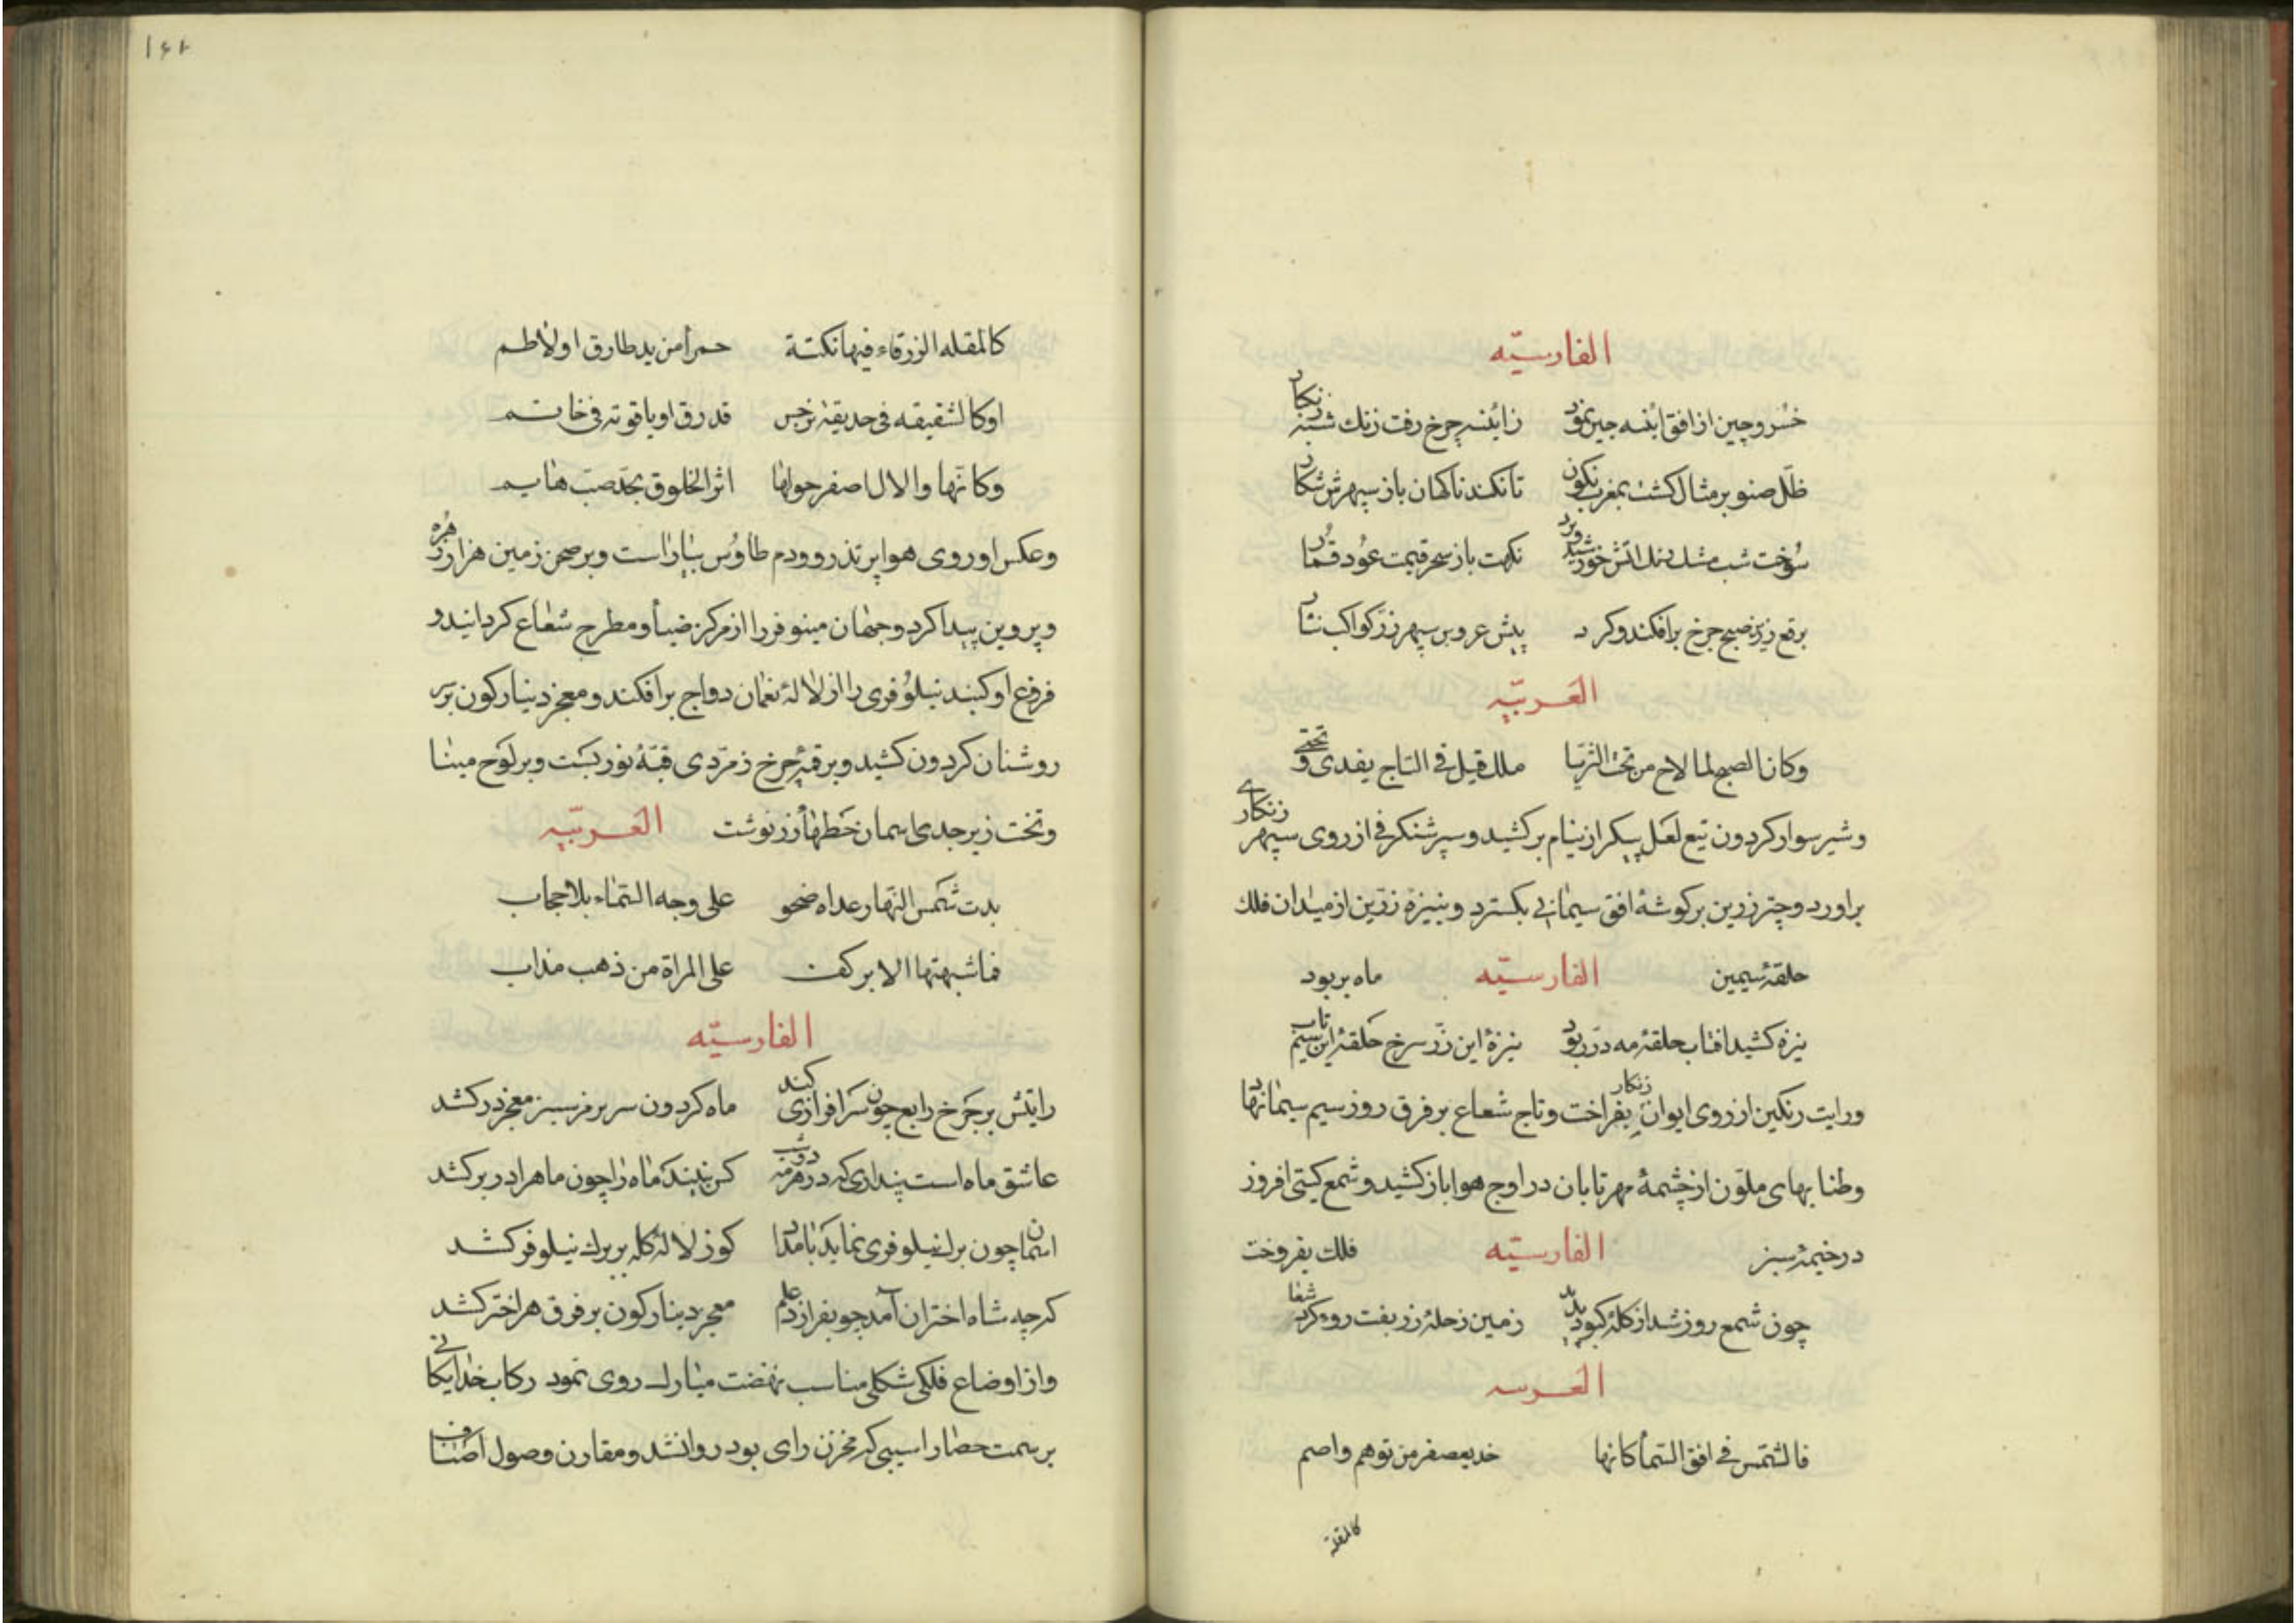 الفارسیّه
خسرو چین از افق اینه چین نمود زاینه چرخ رفت زنك شبه زنكار
ظلّ صنوبر مثال كشت بمغرب نكون تا نكند ناكهان باز سپهرش شكار
سوخت شب مشك رنك اتش خورشید و برد نكهت باد سحر قیمت عود قمار
برقع زرین صبح چرخ برافكند و كرد پیش عروس سپهر زرّ كواكب نثار
العربیّه
وكان الصبح لما لاح من تحت الثریا ملك قبل فی التاج یفدی و تحیّی
و شیر سوار كردون تیغ لعل پیكر از نیام بركشید و سپر شنكرفی از روی سپهر زنكاری
براورد و چتر زرین بر كوشهٔ افق سیمابی بكسترد و بنیزهٔ زرین از میدان فلك
حلقهٔ سیمین الفارسیّه ماه بربود
نیزه كشید افتاب حلقهٔ مه در ربود نیزهٔ این زرّ سرخ حلقهٔ این سیم ناب
و رایت رنكین از روی ایوان زنكار بفراخت و تاج شعاع بر فرق روز سیم سیما نهاد
و طنابهای ملوّن از چشمهٔ مهر تابان در اوج هوا باز كشید و شمع كیتی افروز
در خیمهٔ سبز الفارسیّه فلك بفروخت
چون شمع روز شد از كلهٔ كبود پدید زمین ز حلهٔ زربفت رو
العربیه
فالشمس فی افق السماء كانها خد یعصفر من توهم واصم
كالمقلة
۱۶۲
كالمقله الزرقاء فیها نكتة حمرأ من ید طارق او لاطم
او كالشقیقه فی حدیقة نرجس قد رق او یاقوته فی خاتم
وكانّها والال اصفر حولها اثر الخلوق بخد صبّ هایم
و عكس او روی هوا پر تذرو و دم طاوس بیاراست و بر صحن زمین هزار زهره
و پروین پیدا كرد و جهان مینو فر را از مركز ضیأ و مطرح شعاع كردانید و
فروغ او كنبد نیلوفری را از لالهٔ نعمان دواج برافكند و معجر دینار كون بر سر
روشنان كردون كشید و بر قبهٔ چرخ زمرّدی قبّهٔ نور بست و بر لوح مینا
و تخت زبرجدی اسمان خطها از زر نوشت العربیّه
بدت شمس النهار غداه صحو علی وجه السماء بلا حجاب
فما شبهتها الا بركف علی المراة من ذهب مذاب
الفارسیّه
رایتش بر چرخ رابع چون سرافرازی كند ماه كردون سر بر فر سبز معجر در كشد
عاشق ماه است پنداری كه در هر مه دو شب كس نبیند ماه را چون ماه را در بر كشد
اسمان چون برك نیلوفری نماید بامداد كو ز لاله كله بر برك نیلوفر كشد
كرچه شاه اختران آمد چو بفرازد علم معجر دینار كون بر فرق هر اختر كشد
و از اوضاع فلكی شكلی مناسب نهضت مبارك روی نمود ركاب خدایكانی
بر سمت حصار اسیبی كه مخزن رای بود روانشد و مقارن وصول اصناف